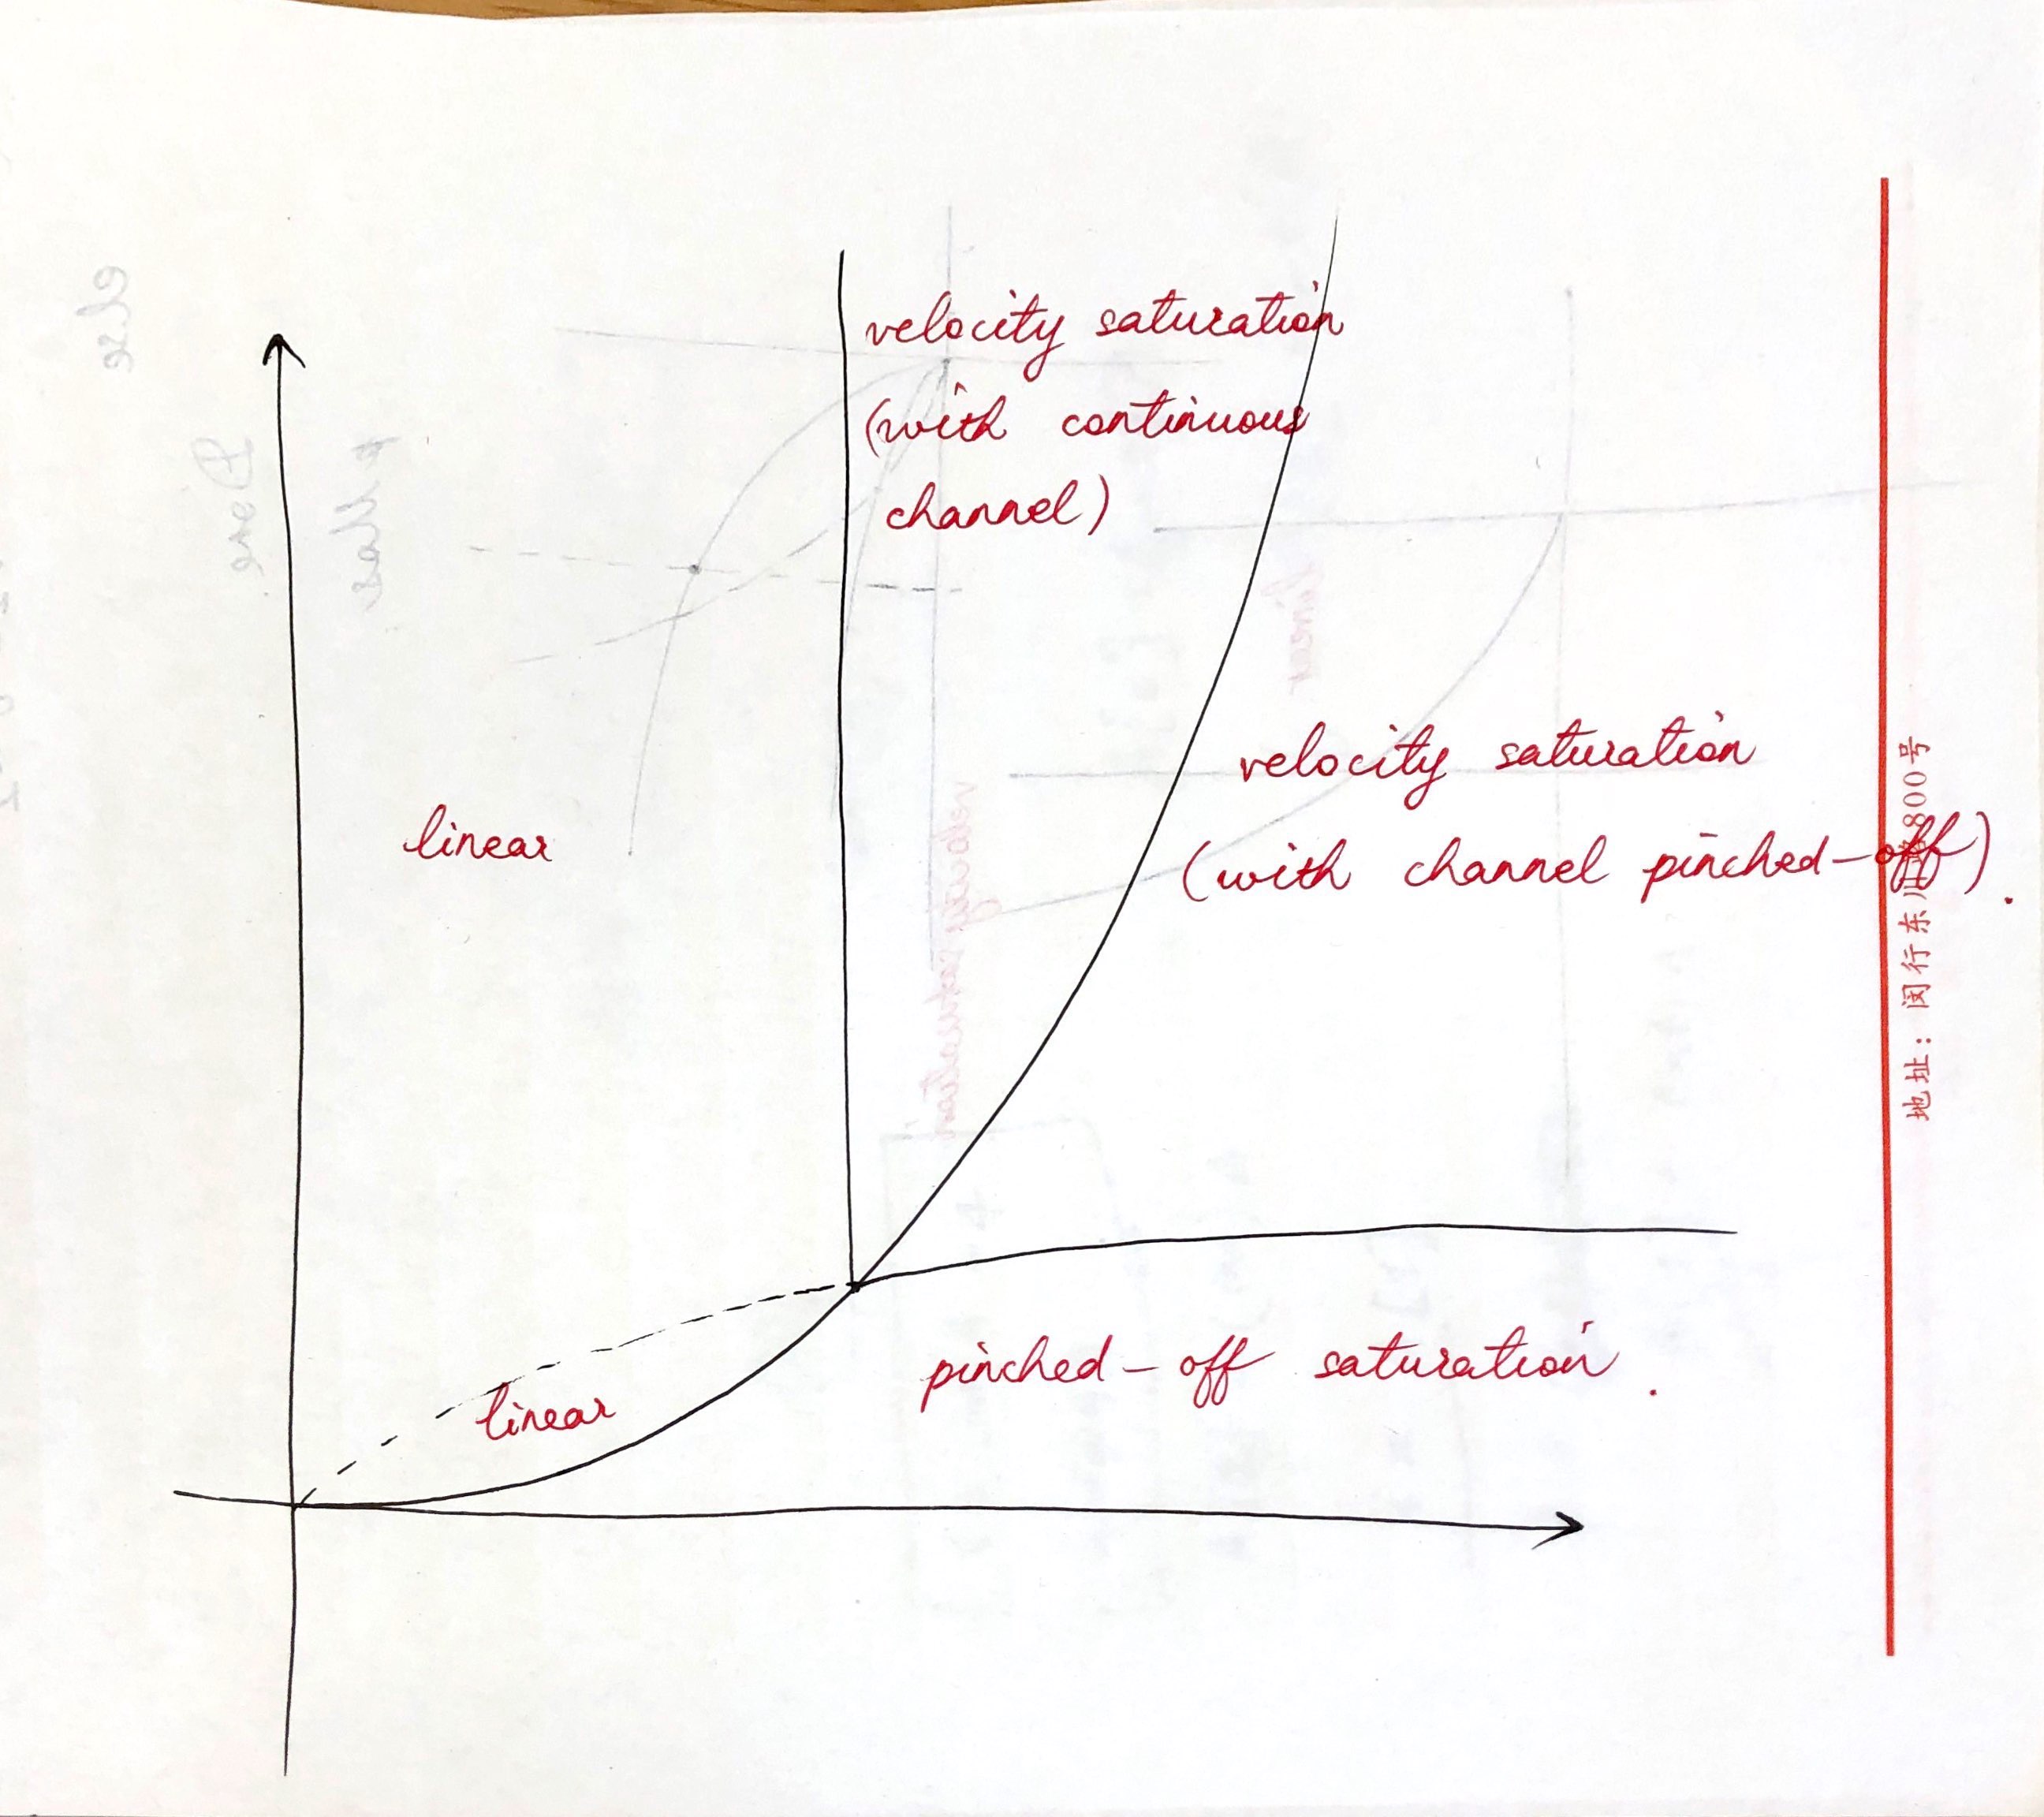 velocity saturation
(with continuous
channel)
velocity saturation
(with channel pinched-off).
linear
linear
pinched-off saturation.
地址：闵行东川路800号